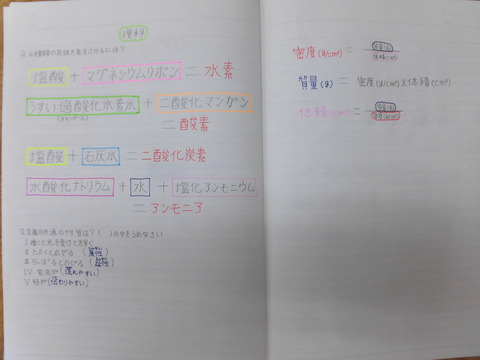 理科
Q. 4種類の気体を発生させるには?
塩酸 + マグネシウムリボン = 水素
うすい過酸化水素水 + 二酸化マンガン
(オキシドール)
= 酸素
塩酸 + 石灰水 = 二酸化炭素
水酸化ナトリウム + 水 + 塩化アンモニウム
= アンモニア
Q. 金属の共通の性質は? ( )の中をうめなさい
I 磨くと光を受けて輝く
II たたくと広がる (展性)
III ひっぱるとのびる (延性)
IV 電気が (流れやすい)
V 熱が (伝わりやすい)
密度(g/cm³) = 質量(g)
体積(cm³)
質量(g) = 密度(g/cm³)×体積(cm³)
体積(cm³) = 質量(g)
密度(g/cm³)